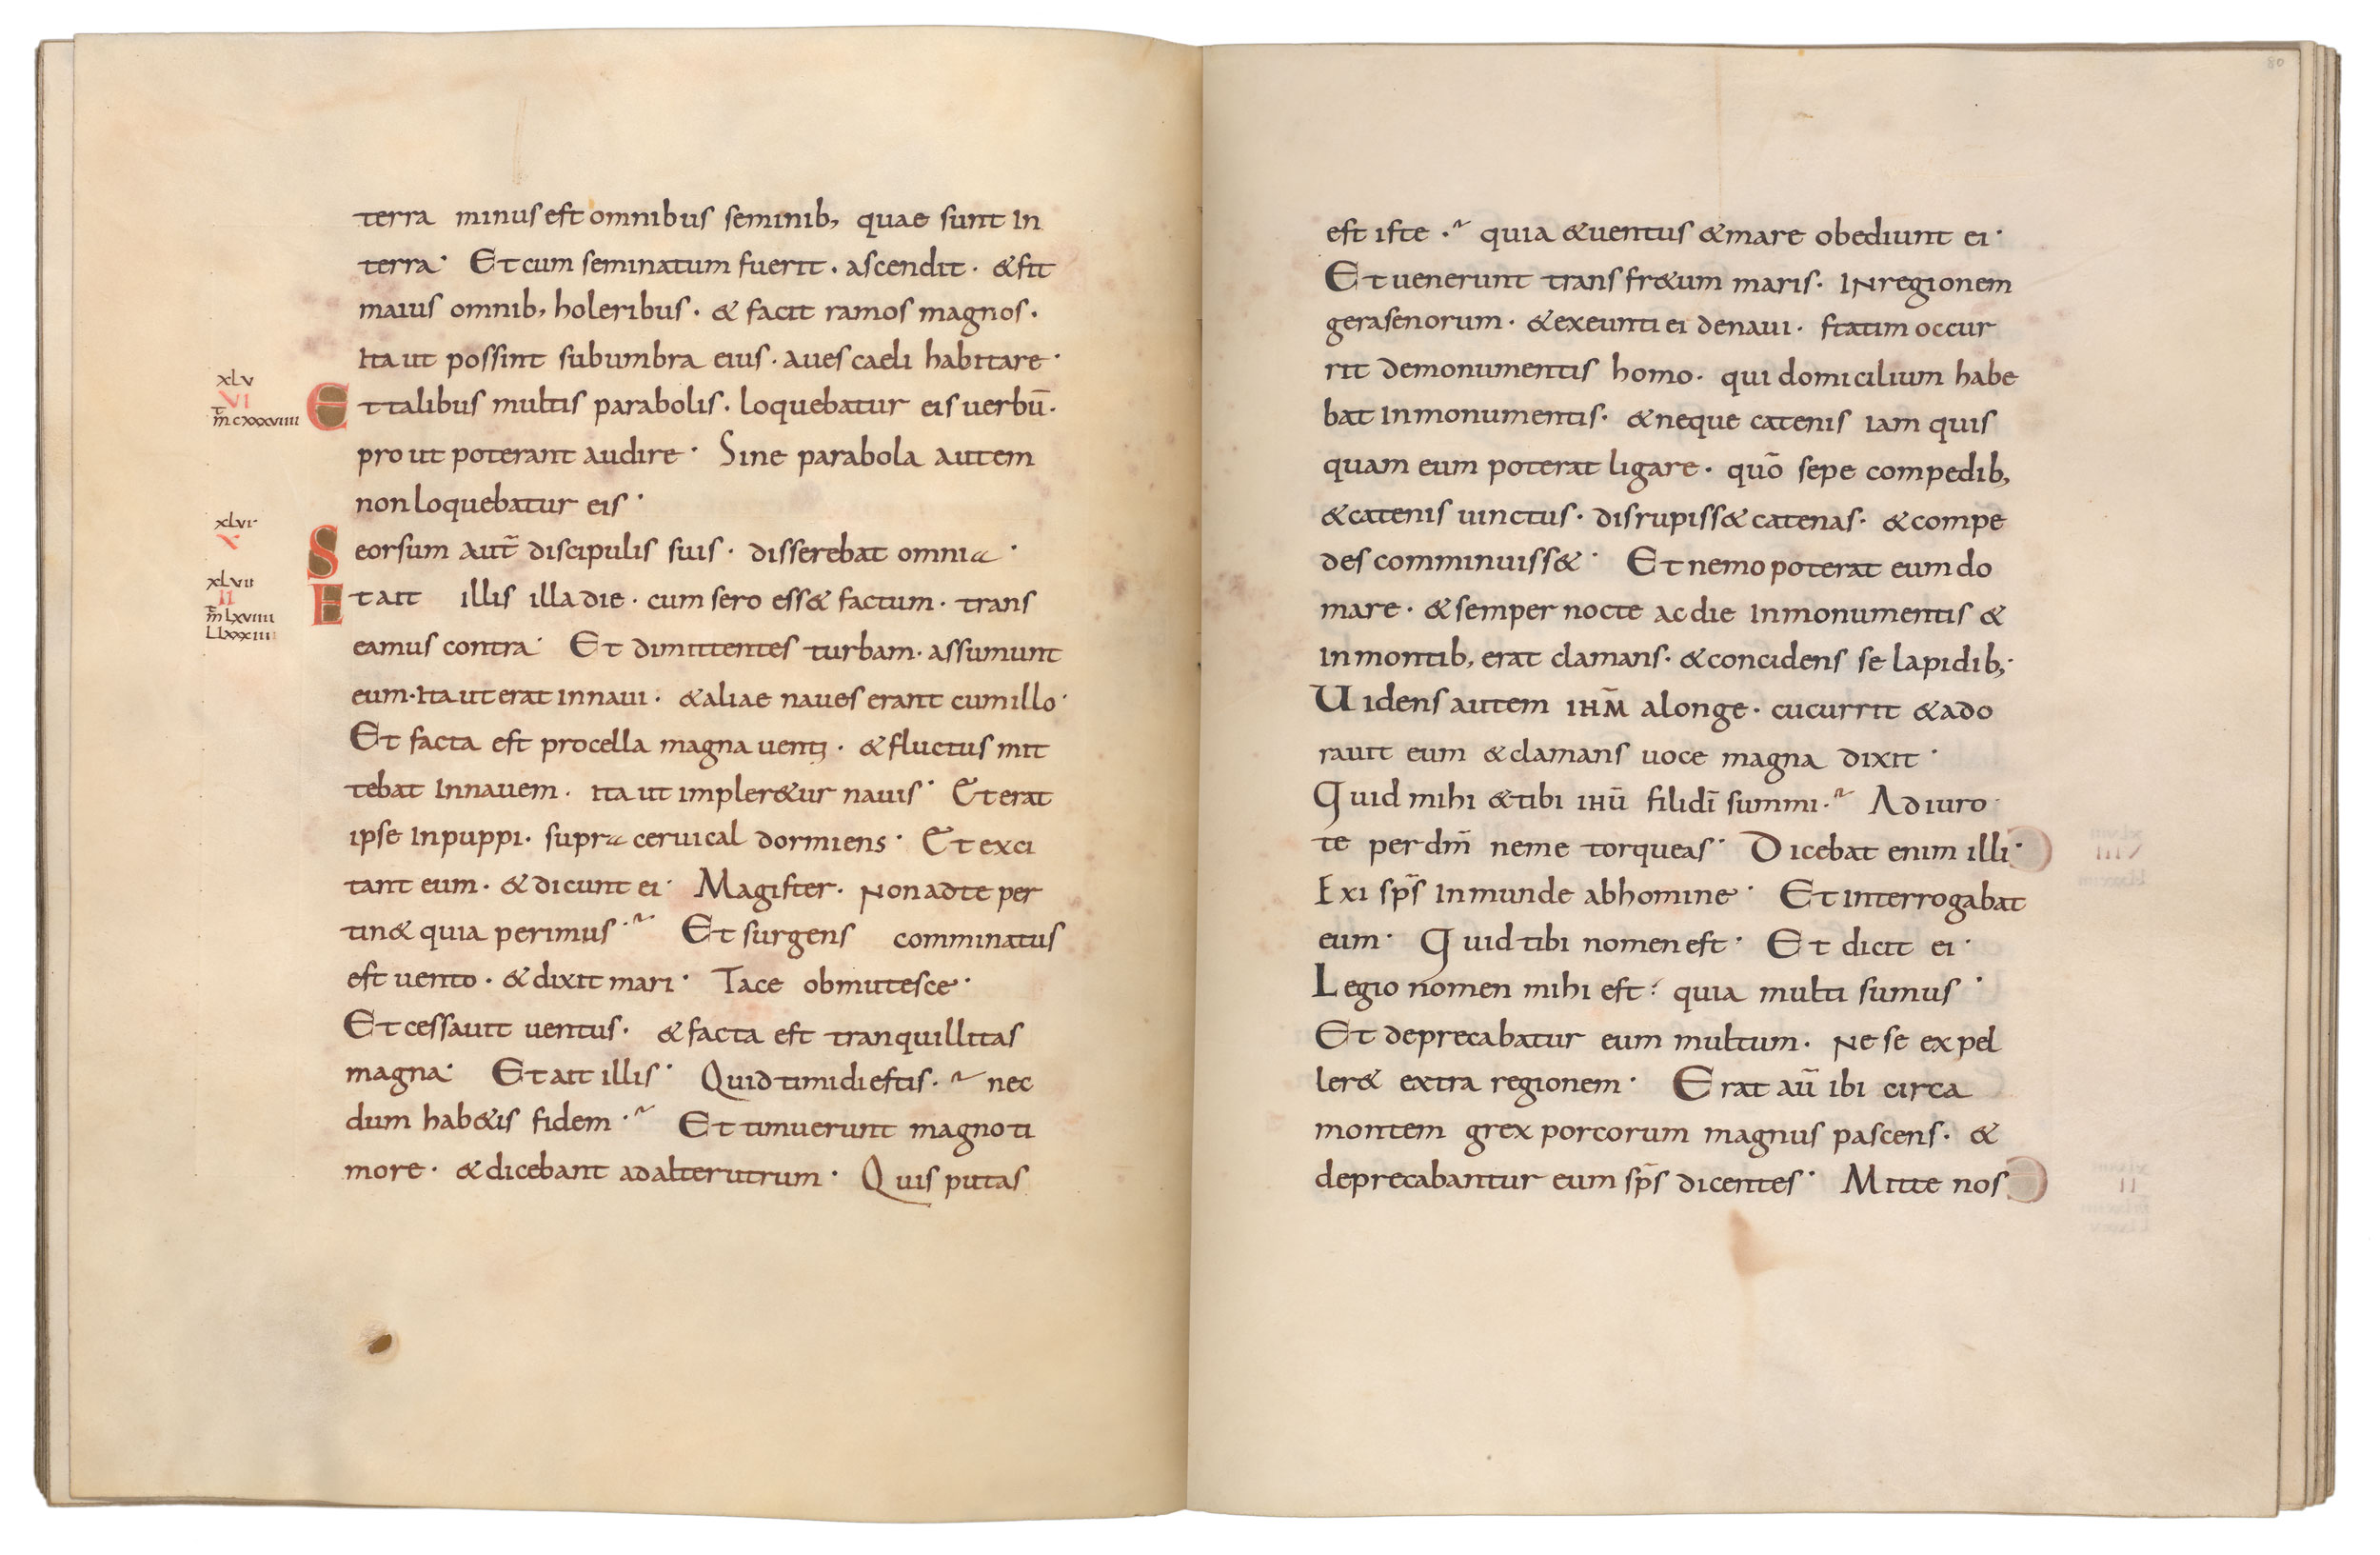 terra minus est omnibus seminib, quae sunt in
terra· Et cum seminatum fuerit · ascendit · & fit
maius omnib, holeribus · & facit ramos magnos ·
Ita ut possint sub umbra eius · aues caeli habitare ·
xlv
VI
m̄ cxxxviiii
Et talibus multis parabolis · loquebatur eis uerbū ·
pro ut poterant audire · Sine parabola autem
non loquebatur eis ·
xlvi
X
Seorsum aut̄ discipulis suis · disserebat omnia ·
xlvii
II
m̄ Lxviiii
L lxxxiii
Et ait illis illa die · cum sero ess& factum · trans
eamus contra · Et dimittentes turbam · assumunt
eum · Ita ut erat in naui · & aliae naues erant cum illo ·
Et facta est procella magna uenti · & fluctus mit
tebat In nauem · Ita ut impler&ur nauis · Et erat
ipse In puppi · supra ceruical dormiens · Et exci
tant eum · & dicunt ei · Magister · Non ad te per
tin& quia perimus · Et surgens comminatus
est uento · & dixit mari · Tace obmutesce ·
Et cessauit uentus · & facta est tranquillitas
magna · Et ait illis · Quid timidi estis · nec
dum hab&is fidem · Et timuerunt magno ti
more · & dicebant ad alterutrum · Quis putas
80
est iste · quia & uentus & mare obediunt ei ·
Et uenerunt trans fr&um maris · IN regionem
gerasenorum · & exeunti ei de naui · statim occur
rit de monumentis homo · qui domicilium habe
bat In monumentis · & neque catenis iam quis
quam eum poterat ligare · quō sepe compedib,
& catenis uinctus · disrupiss& catenas · & compe
des comminuiss& · Et nemo poterat eum do
mare · & semper nocte ac die In monumentis &
In montib, erat clamans · & concidens se lapidib, ·
Uidens autem IHM̄ a longe · cucurrit & ado
rauit eum & clamans uoce magna dixit ·
Quid mihi & tibi IHŪ fili dī summi · Adiuro
te per dm̄ ne me torqueas · Dicebat enim illi ·
Exi sp̄s Inmunde ab homine · Et Interrogabat
eum · Quid tibi nomen est · Et dicit ei ·
Legio nomen mihi est · quia multi sumus ·
Et deprecabatur eum multum · Ne se expel
ler& extra regionem · Erat aū ibi circa
montem grex porcorum magnus pascens · &
deprecabantur eum sp̄s dicentes · Mitte nos